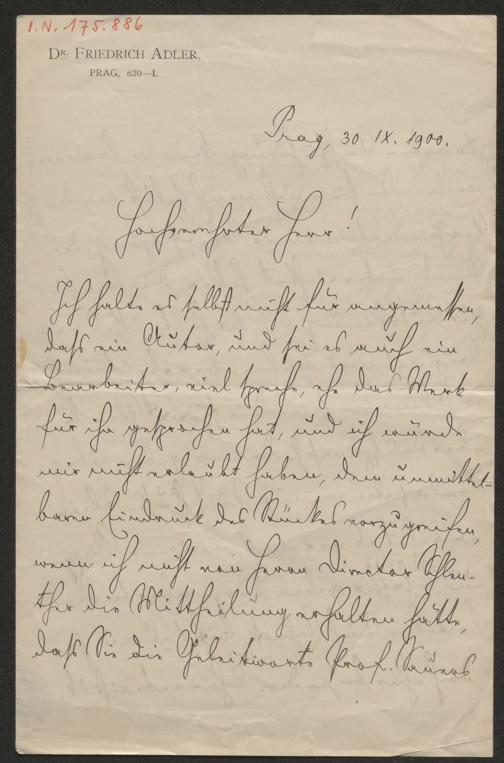 I.N. 175.886
DR. FRIEDRICH ADLER.
PRAG, 620—I.
Prag, 30. IX. 1900.
Hochverehrter Herr!
Ich halte es selbst nicht für angemessen,
dass ein Autor, und sei es auch ein
Bearbeiter, viel spreche, ehe das Werk
für ihn gesprochen hat, und ich würde
mir nicht erlaubt haben, dem unmittel-
baren Eindruck des Stückes vorzugreifen,
wenn ich nicht von Herrn Director Schlen-
ther die Mittheilung erhalten hätte,
dass Sie die Geleitworte Prof. Sauers